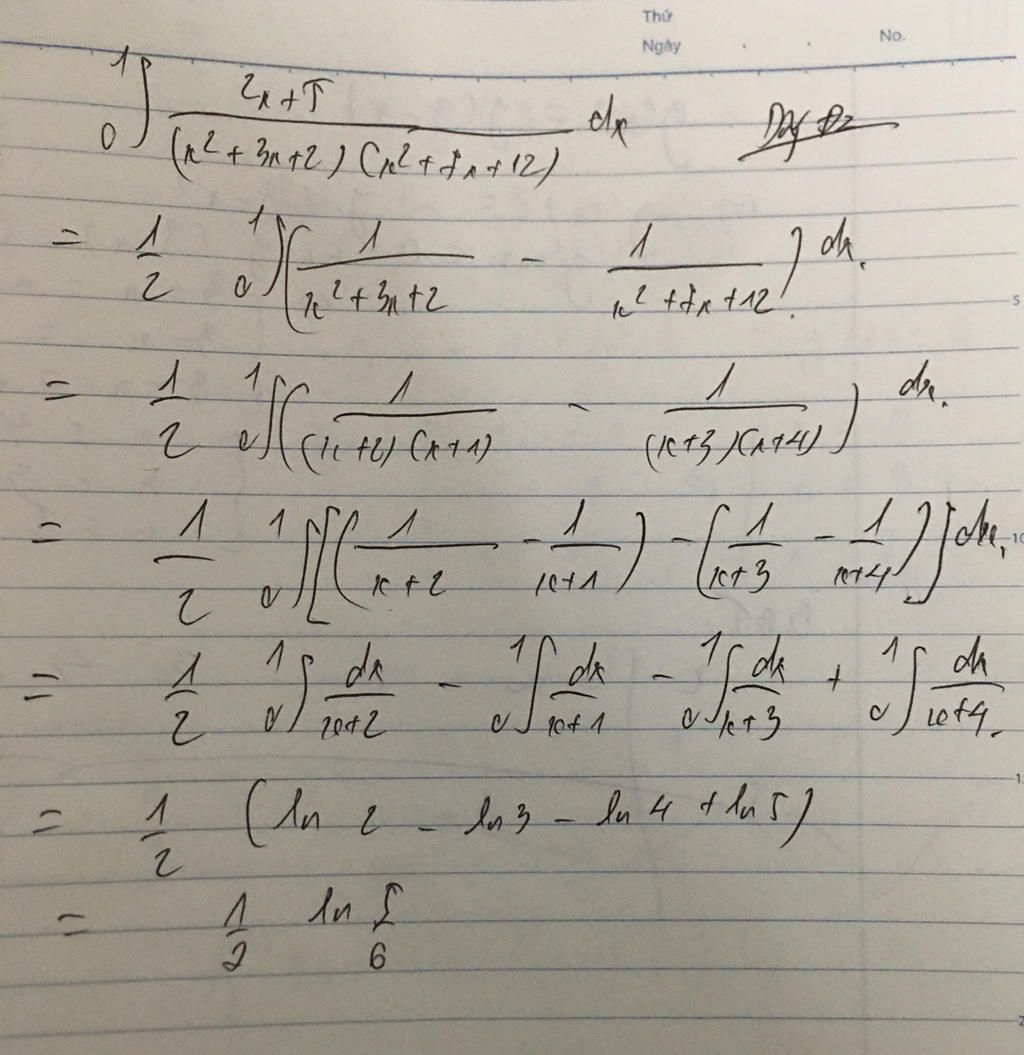 Thứ
Ngày No.
1∫0 (2x+5)/((x²+3x+2)(x²+7x+12)) dx
= 1/2 1∫0 (1/(x²+3x+2) - 1/(x²+7x+12)) dx.
5
= 1/2 1∫0 (1/((x+2)(x+1)) - 1/((x+3)(x+4))) dx.
= 1/2 1∫0 [(1/(x+2) - 1/(x+1)) - (1/(x+3) - 1/(x+4))] dx.
10
= 1/2 1∫0 dx/(x+2) - 1∫0 dx/(x+1) - 1∫0 dx/(x+3) + 1∫0 dx/(x+4).
= 1/2 (ln 2 - ln 3 - ln 4 + ln 5)
= 1/2 ln 5/6